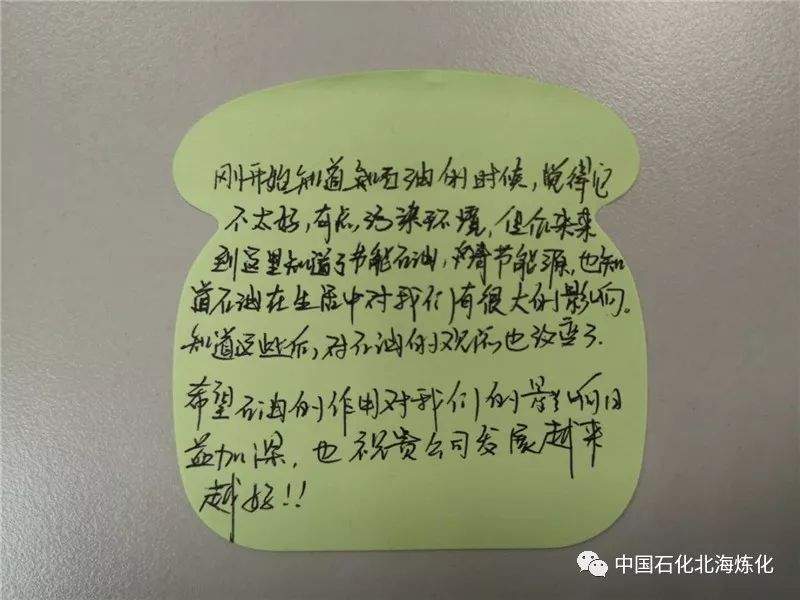 刚开始知道知石油的时候，觉得它
不太好，有点污染环境，但你来
到这里知道了节能石油，节能源，也知
道石油在生活中对我们有很大的影响。
知道这些后，对石油的观念也改变了.
希望石油的作用对我们的影响日
益加深，也祝贵公司发展越来
越好!!
中国石化北海炼化